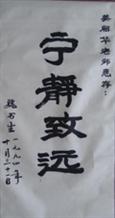 吴绍华老师惠存：
宁静致远
魏书生
一九九四年
十月二十一日